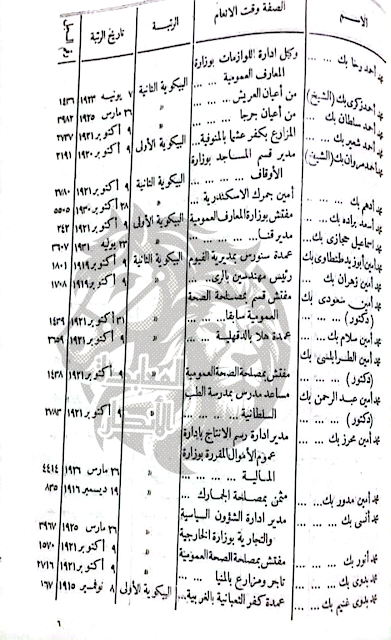 الاسم الصفة وقت الانعام الرتبة تاريخ الرتبة رقم السجل
محمد أحمد رضا بك ... وكيل ادارة اللوازمات بوزارة
المعارف العمومية ... البيكوية الثانية ٧ يونيه ١٩٢٣ ١٤٣٦
محمد أحمد زكرى بك (الشيخ) من أعيان العريش ... » ٢٦ مارس ١٩٢٥ ٣٩٨٢
محمد أحمد سلطان بك ... من أعيان جرجا ... » ٩ أكتوبر ١٩٢١ ٢٧٣٧
محمد أحمد شعير بك ... المزارع بكفر عشما بالمنوفية... البيكوية الأولى ٩ أكتوبر ١٩٢٠ ٢١٩١
محمد أحمد مروان بك (الشيخ) مدير قسم المساجد بوزارة
الأوقاف ... البيكوية الثانية ٩ أكتوبر ١٩٢١ ٢٧٨٠
محمد أدهم بك ... أمين جمرك الاسكندرية ... » ٢٨ أكتوبر ١٩٣٠ ٥٥٠٥
محمد أسعد براده بك ... مفتش بوزارة المعارف العمومية البيكوية الأولى ٩ أكتوبر ١٩٢١ ٢٤٢
محمد اسماعيل حجازى بك ... مدير قنا ... » ٢٣ يوليه ١٩٣١ ٣٦٠٧
محمد أمين أبوزيد طنطاوى بك عمدة سنورس بمديرية الفيوم البيكوية الثانية ٩ أكتوبر ١٩١٩ ١٨٠١
محمد أمين زهران بك ... رئيس مهندسين بالرى... » ٩ أكتوبر ١٩١٩ ١٧٠٨
محمد أمين سعودى بك مفتش قسم بمصلحة الصحة
(دكتور) ... العمومية سابقا... » ٣١ أكتوبر ١٩٢١ ١٤٣٩
محمد أمين سلام بك ... عمدة هلا بالدقهلية ... » ٩ أكتوبر ١٩٢١ ٢٦٥٩
محمد أمين الطرابلسى بك
(دكتور) ... مفتش بمصلحة الصحة العمومية » ٩ أكتوبر ١٩٢١ ١٤٣٨
محمد أمين عبد الرحمن بك مساعد مدرس بمدرسة الطب
(دكتور) ... السلطانية ... » ٩ أكتوبر ١٩٢١ ٢٧٨٣
محمد أمين محرز بك ... مدير ادارة رسم الانتاج بادارة
عموم الأموال المقررة بوزارة
المالية ... » ٢٦ مارس ١٩٢٦ ٤٤١٤
محمد أمين مدور بك ... مثمن بمصلحة الجمارك ... » ١٩ ديسمبر ١٩١٦ ٨٣٥
محمد أنسى بك ... مدير ادارة الشؤون السياسية
والتجارية بوزارة الخارجية » ٢٦ مارس ١٩٢٥ ٣٩٦٧
محمد أنور بك ... مفتش بمصلحة الصحة العمومية » ٩ أكتوبر ١٩٢١ ١٥٧٠
محمد بدوى بك ... تاجر ومزارع بالمنيا ... » ٩ أكتوبر ١٩٢١ ٢٧١٦
محمد بدوى غنيم بك ... عمدة كفر الثمبانية بالغربية... البيكوية الأولى ٨ نوفمبر ١٩١٥ ١٦٧
٦